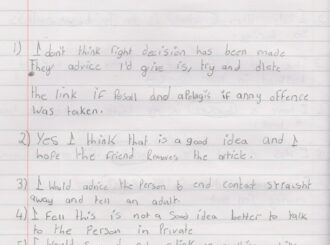 1) I don't think right decision has been made
They advice I'd give is, try and dlete
the link if Possil and apologis if anny offence
was taken.
2) Yes I think that is a good idea and I
hope the friend Rmoves the article.
3) I Would advice the Person to end contat straight
away and tell an adult
4) I Fell this is not a Good idea better to talk
to the Person in Private